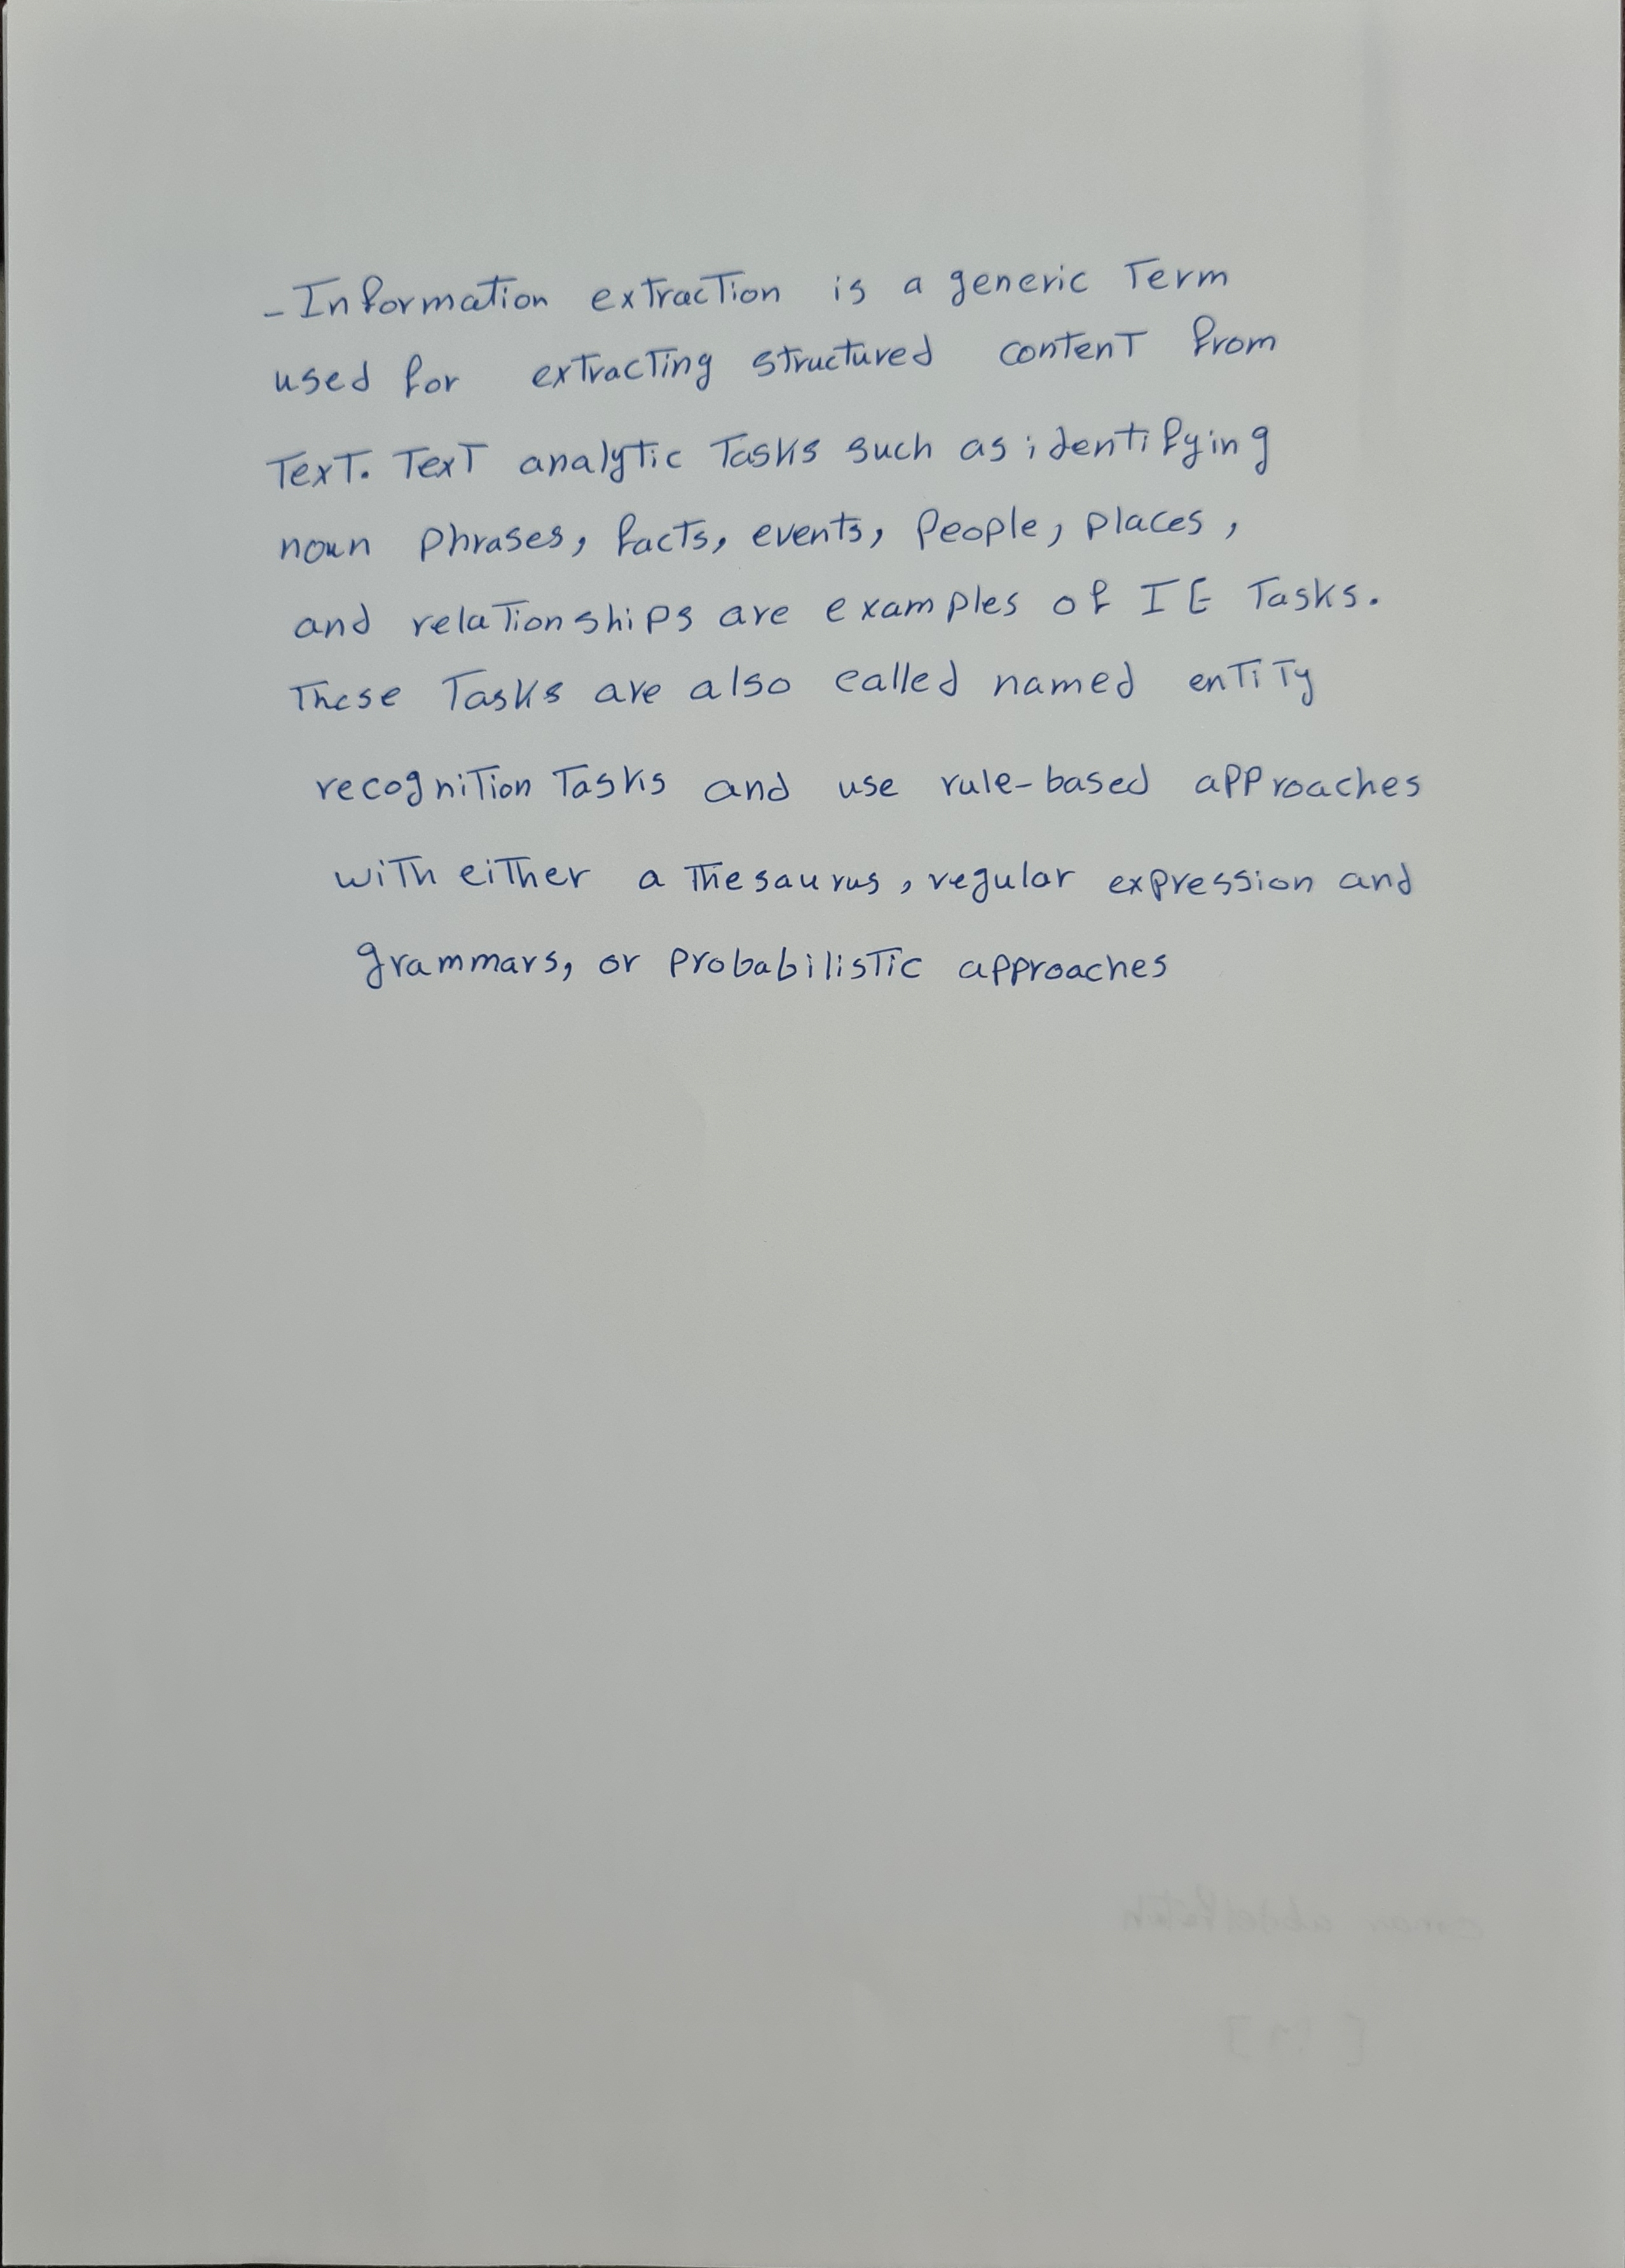 - Information extraction is a generic Term
used for extracting structured content from
Text. Text analytic Tasks such as identifying
noun phrases, facts, events, People, places,
and relationships are examples of IE Tasks.
These Tasks are also called named entity
recognition Tasks and use rule-based approaches
with either a Thesaurus, regular expression and
grammars, or probabilistic approaches